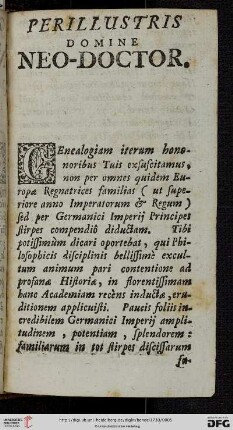 PERILLUSTRIS
DOMINE
NEO-DOCTOR.
GEnealogiam iterum hono-
noribus Tuis exsuscitamus,
non per omnes quidem Eu-
ropæ Regnatrices familias (ut supe-
riore anno Imperatorum & Regum)
sed per Germanici Imperij Principes
stirpes compendiô diductam. Tibi
potissimùm dicari oportebat, qui Phi-
losophicis disciplinis bellissimè excul-
tum animum pari contentione ad
profanæ Historiæ, in florentissimam
hanc Academiam recèns inductæ, eru-
ditionem applicuisti. Paucis foliis in-
credibilem Germanici Imperij ampli-
tudinem, potentiam, splendorem:
familiarum in tot stirpes discissarum
DFG